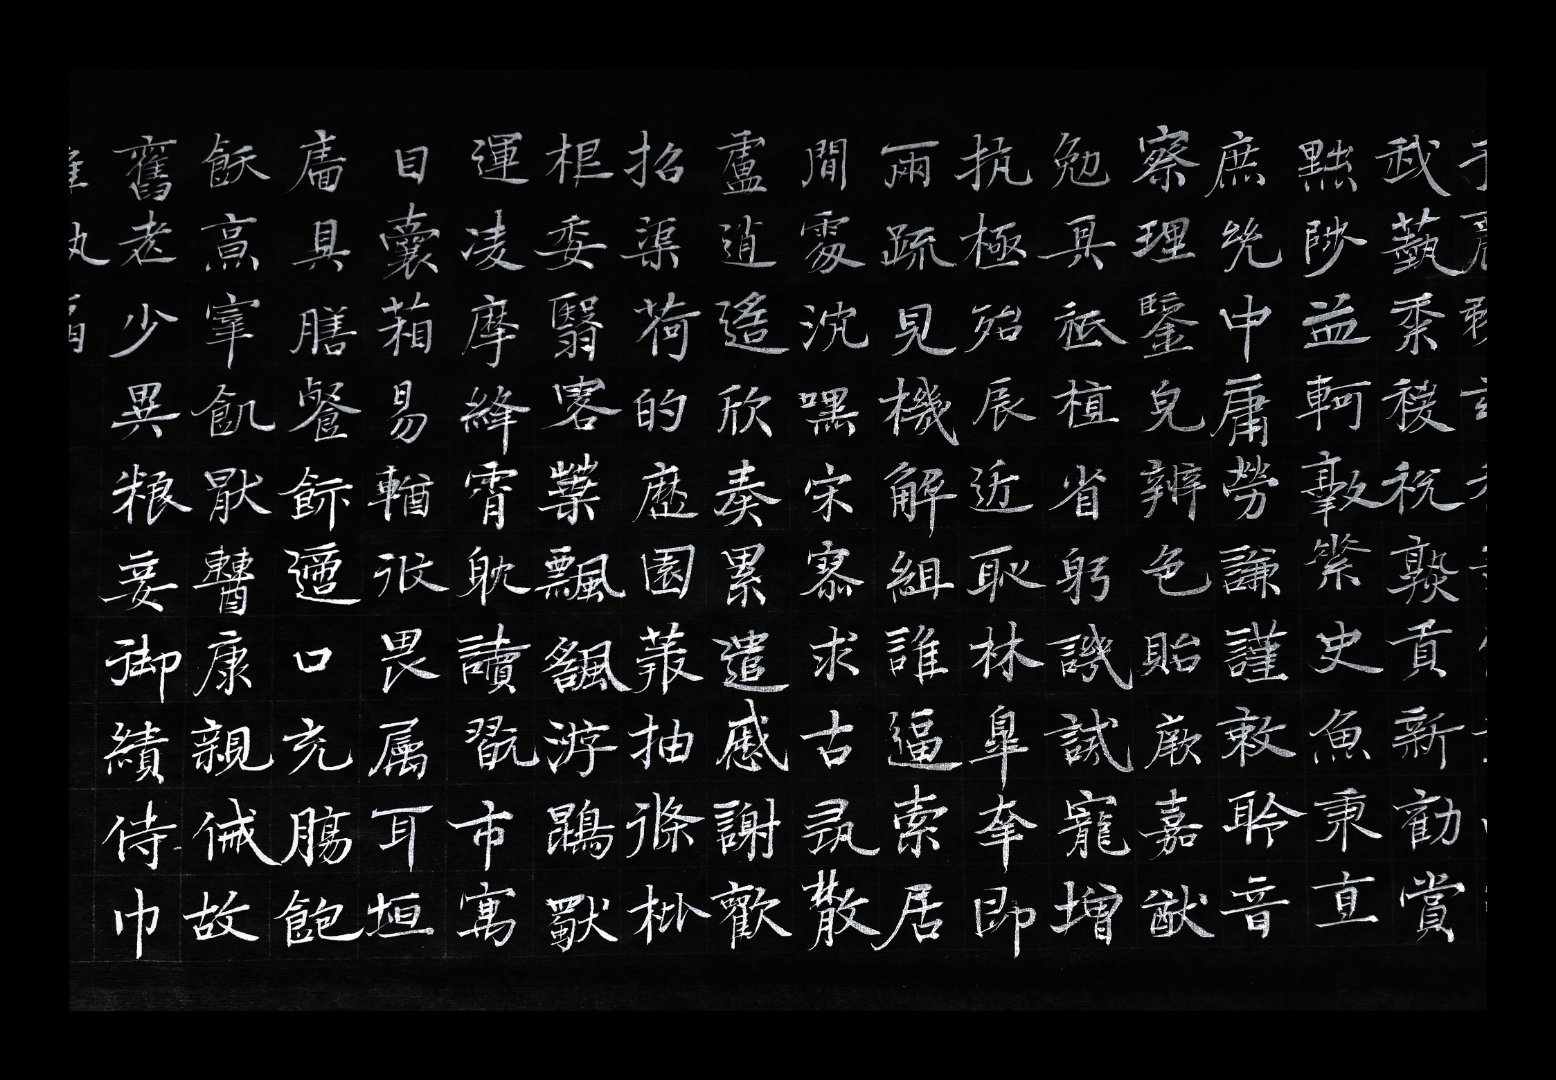 我藝黍稷稅熟貢新勸賞
黜陟孟軻敦素史魚秉直
庶幾中庸勞謙謹敕聆音
察理鑒皃辨色貽厥嘉猷
勉其祗植省躬譏誡寵增
抗極殆辱近恥林皋幸即
兩疏見機解組誰逼索居
閒處沈嘿寂寥求古尋散
慮逍遙欣奏累遣慼謝歡
招渠荷的歷園莽抽條枇
根委翳落葉飄颻游鵾獨
運凌摩絳霄耽讀翫市寓
目囊箱易輶攸畏属耳垣
牆具膳餐飯適口充腸飽
飫烹宰飢厭糟糠親戚故
舊老少異粮妾御績侍巾